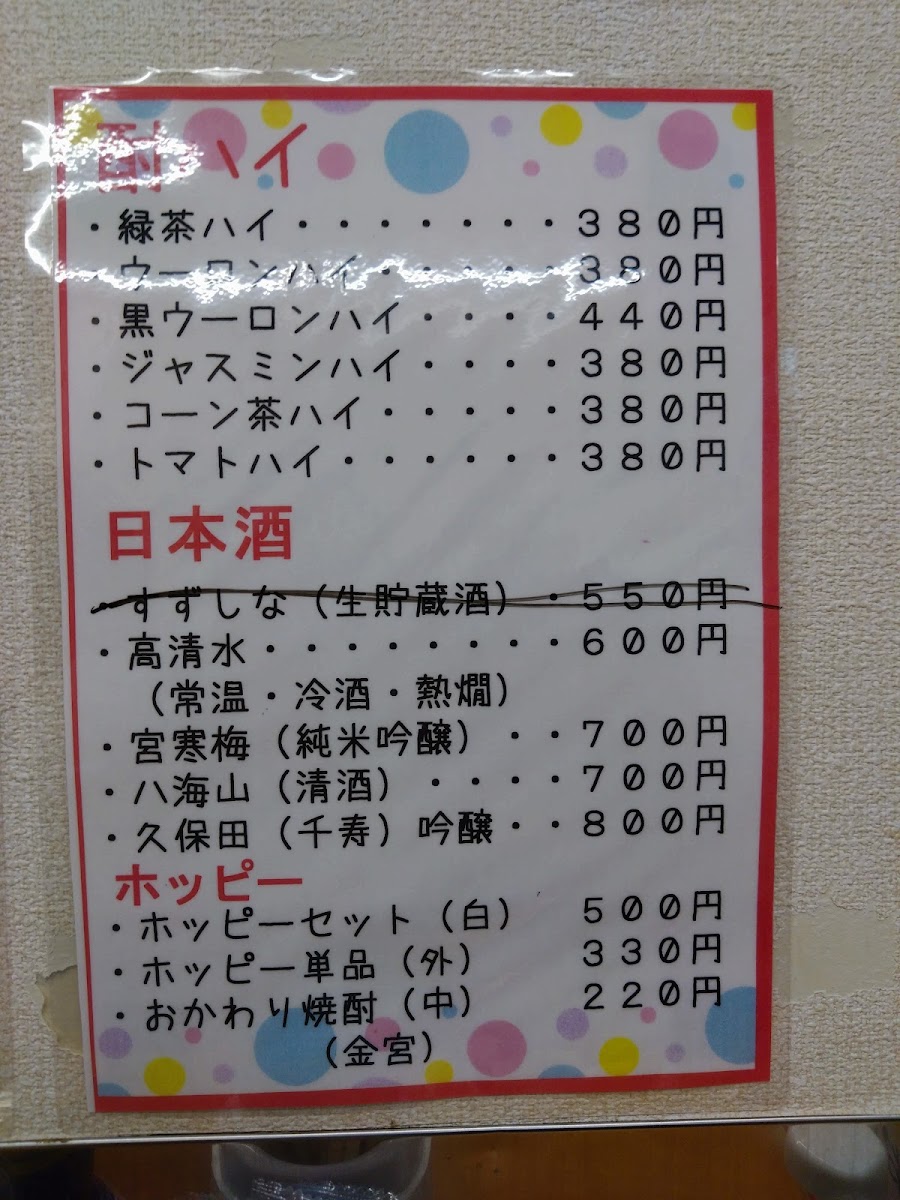 酎ハイ
・緑茶ハイ・・・・・・・380円
・ウーロンハイ・・・・・380円
・黒ウーロンハイ・・・・440円
・ジャスミンハイ・・・・380円
・コーン茶ハイ・・・・・380円
・トマトハイ・・・・・・380円
日本酒
・すずしな(生貯蔵酒)・550円
・高清水・・・・・・・・600円
(常温・冷酒・熱燗)
・宮寒梅(純米吟醸)・・700円
・八海山(清酒)・・・・700円
・久保田(千寿)吟醸・・800円
ホッピー
・ホッピーセット(白) 500円
・ホッピー単品(外) 330円
・おかわり焼酎(中) 220円
(金宮)